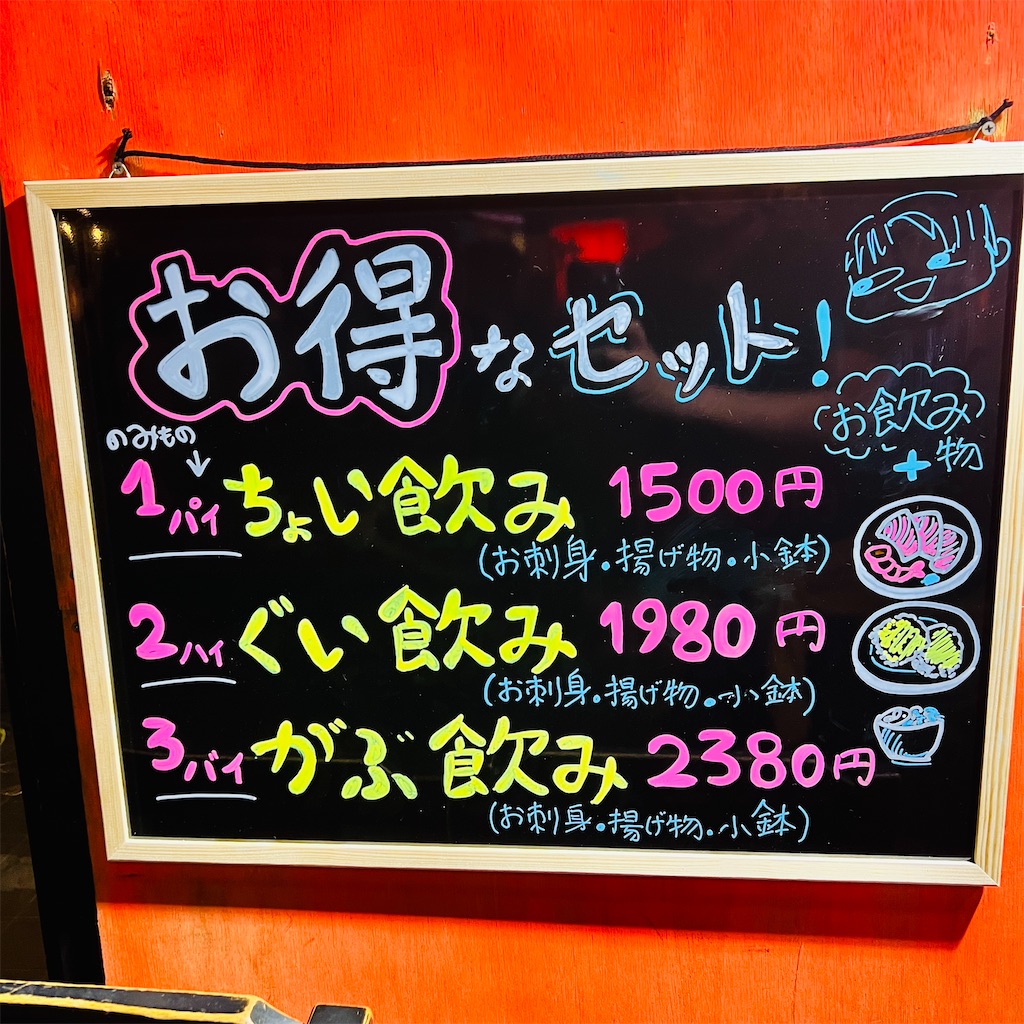 お得なセット!
のみもの↓
1パイ ちょい飲み 1500円
(お刺身・揚げ物・小鉢)
2ハイ ぐい飲み 1980円
(お刺身・揚げ物・小鉢)
3バイ がぶ飲み 2380円
(お刺身・揚げ物・小鉢)
お飲み
物
+